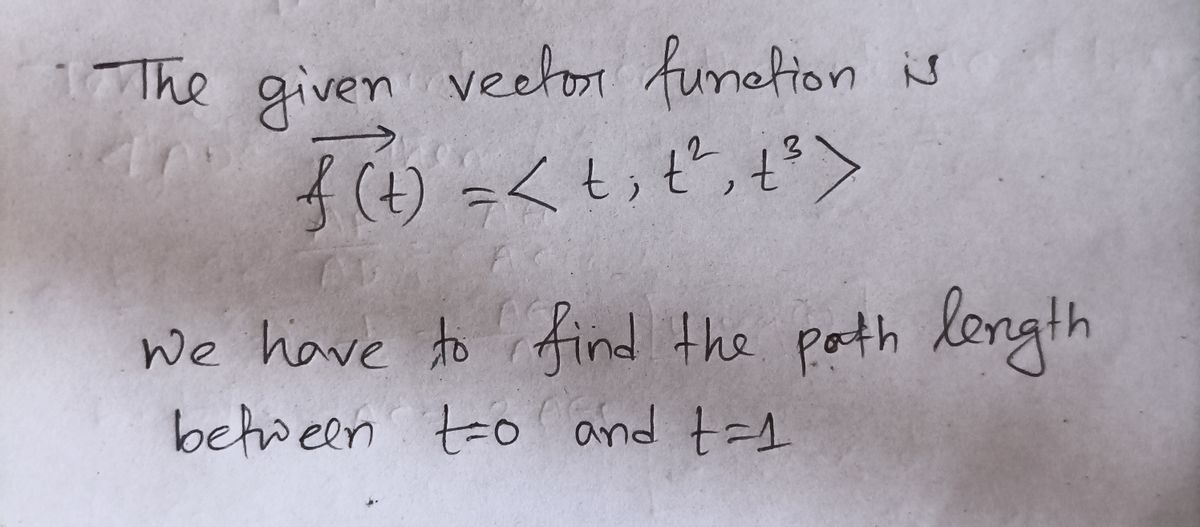 The given vector function is
f(t) = < t, t², t³ >
We have to find the path length
between t=0 and t=1